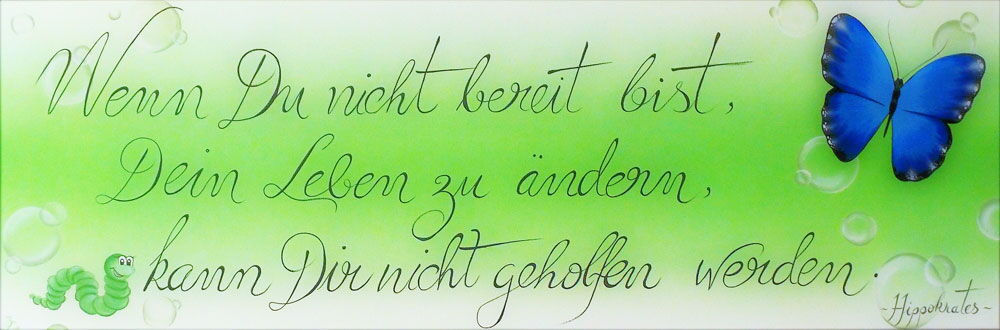 Wenn Du nicht bereit bist,
Dein Leben zu ändern,
kann Dir nicht geholfen werden.
-Hippokrates-